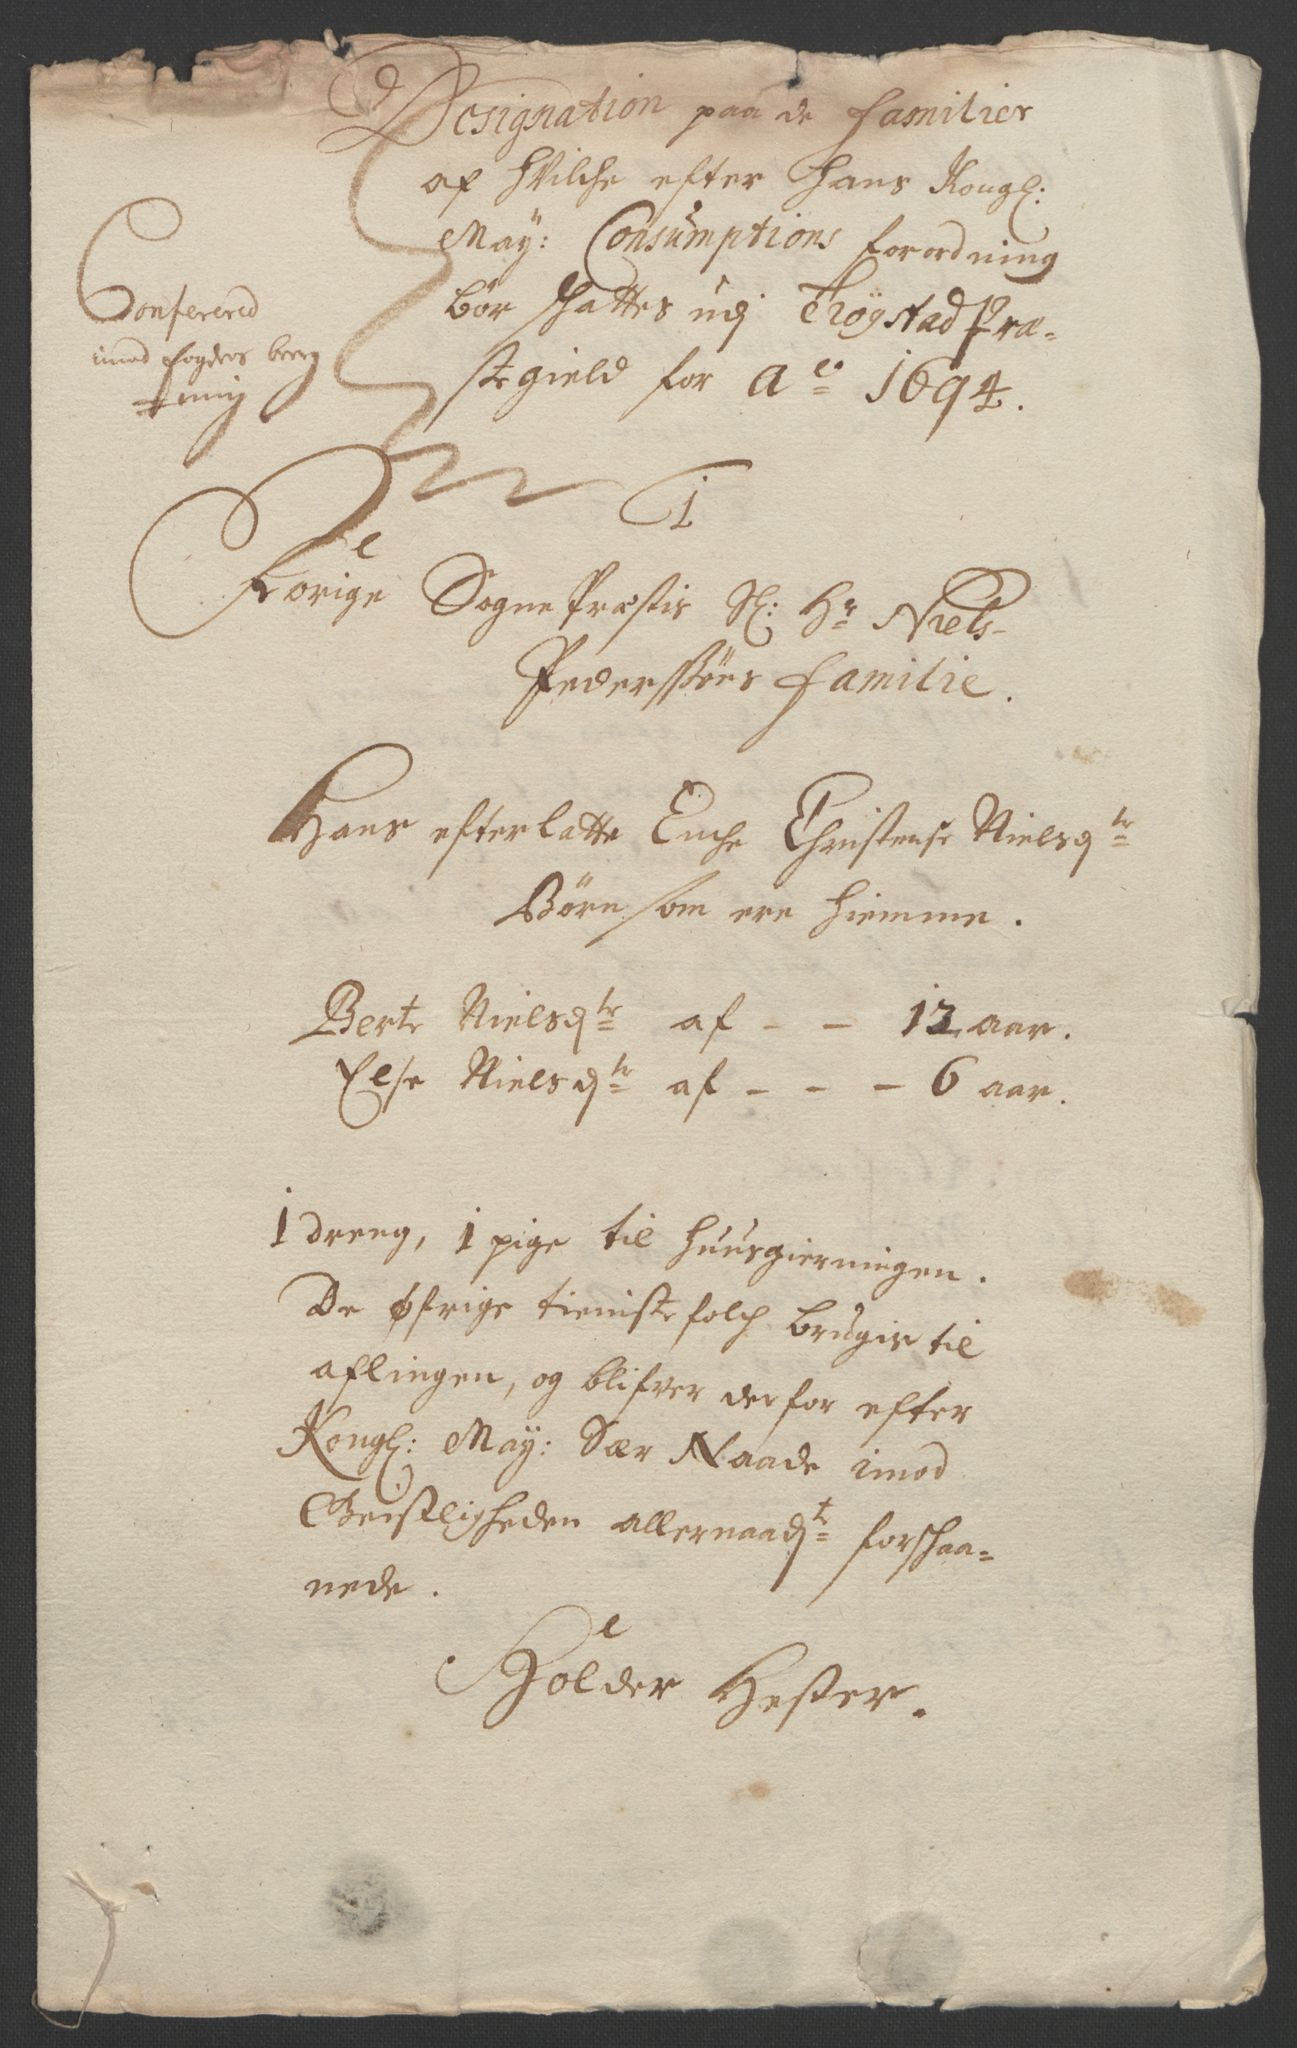 Designation paa de familier
af hvilche efter Hans Kongl:
May: Consumptions forordning
bør schattes udj Trøgstad Præ=
stegield for Ao 1694.
Confererid
imod fogdens
1
Forige Sogne Præstis Sl: Hr Niels
Pederssøns familie.
Hans efterlatte Enche Christense Nielsdtr
Børn som ere hiemme.
Berte Nielsdtr af - - 12 aar.
Else Nielsdtr af - - - 6 aar.
1 dreng, 1 pige til huusgierningen.
De øfrige tieniste folch brugis til
aflingen, og blifver derfor efter
Kongl: May: Sær Naade imod
Geistligheden allernaadt forschaa=
nede.
Holder Hester.